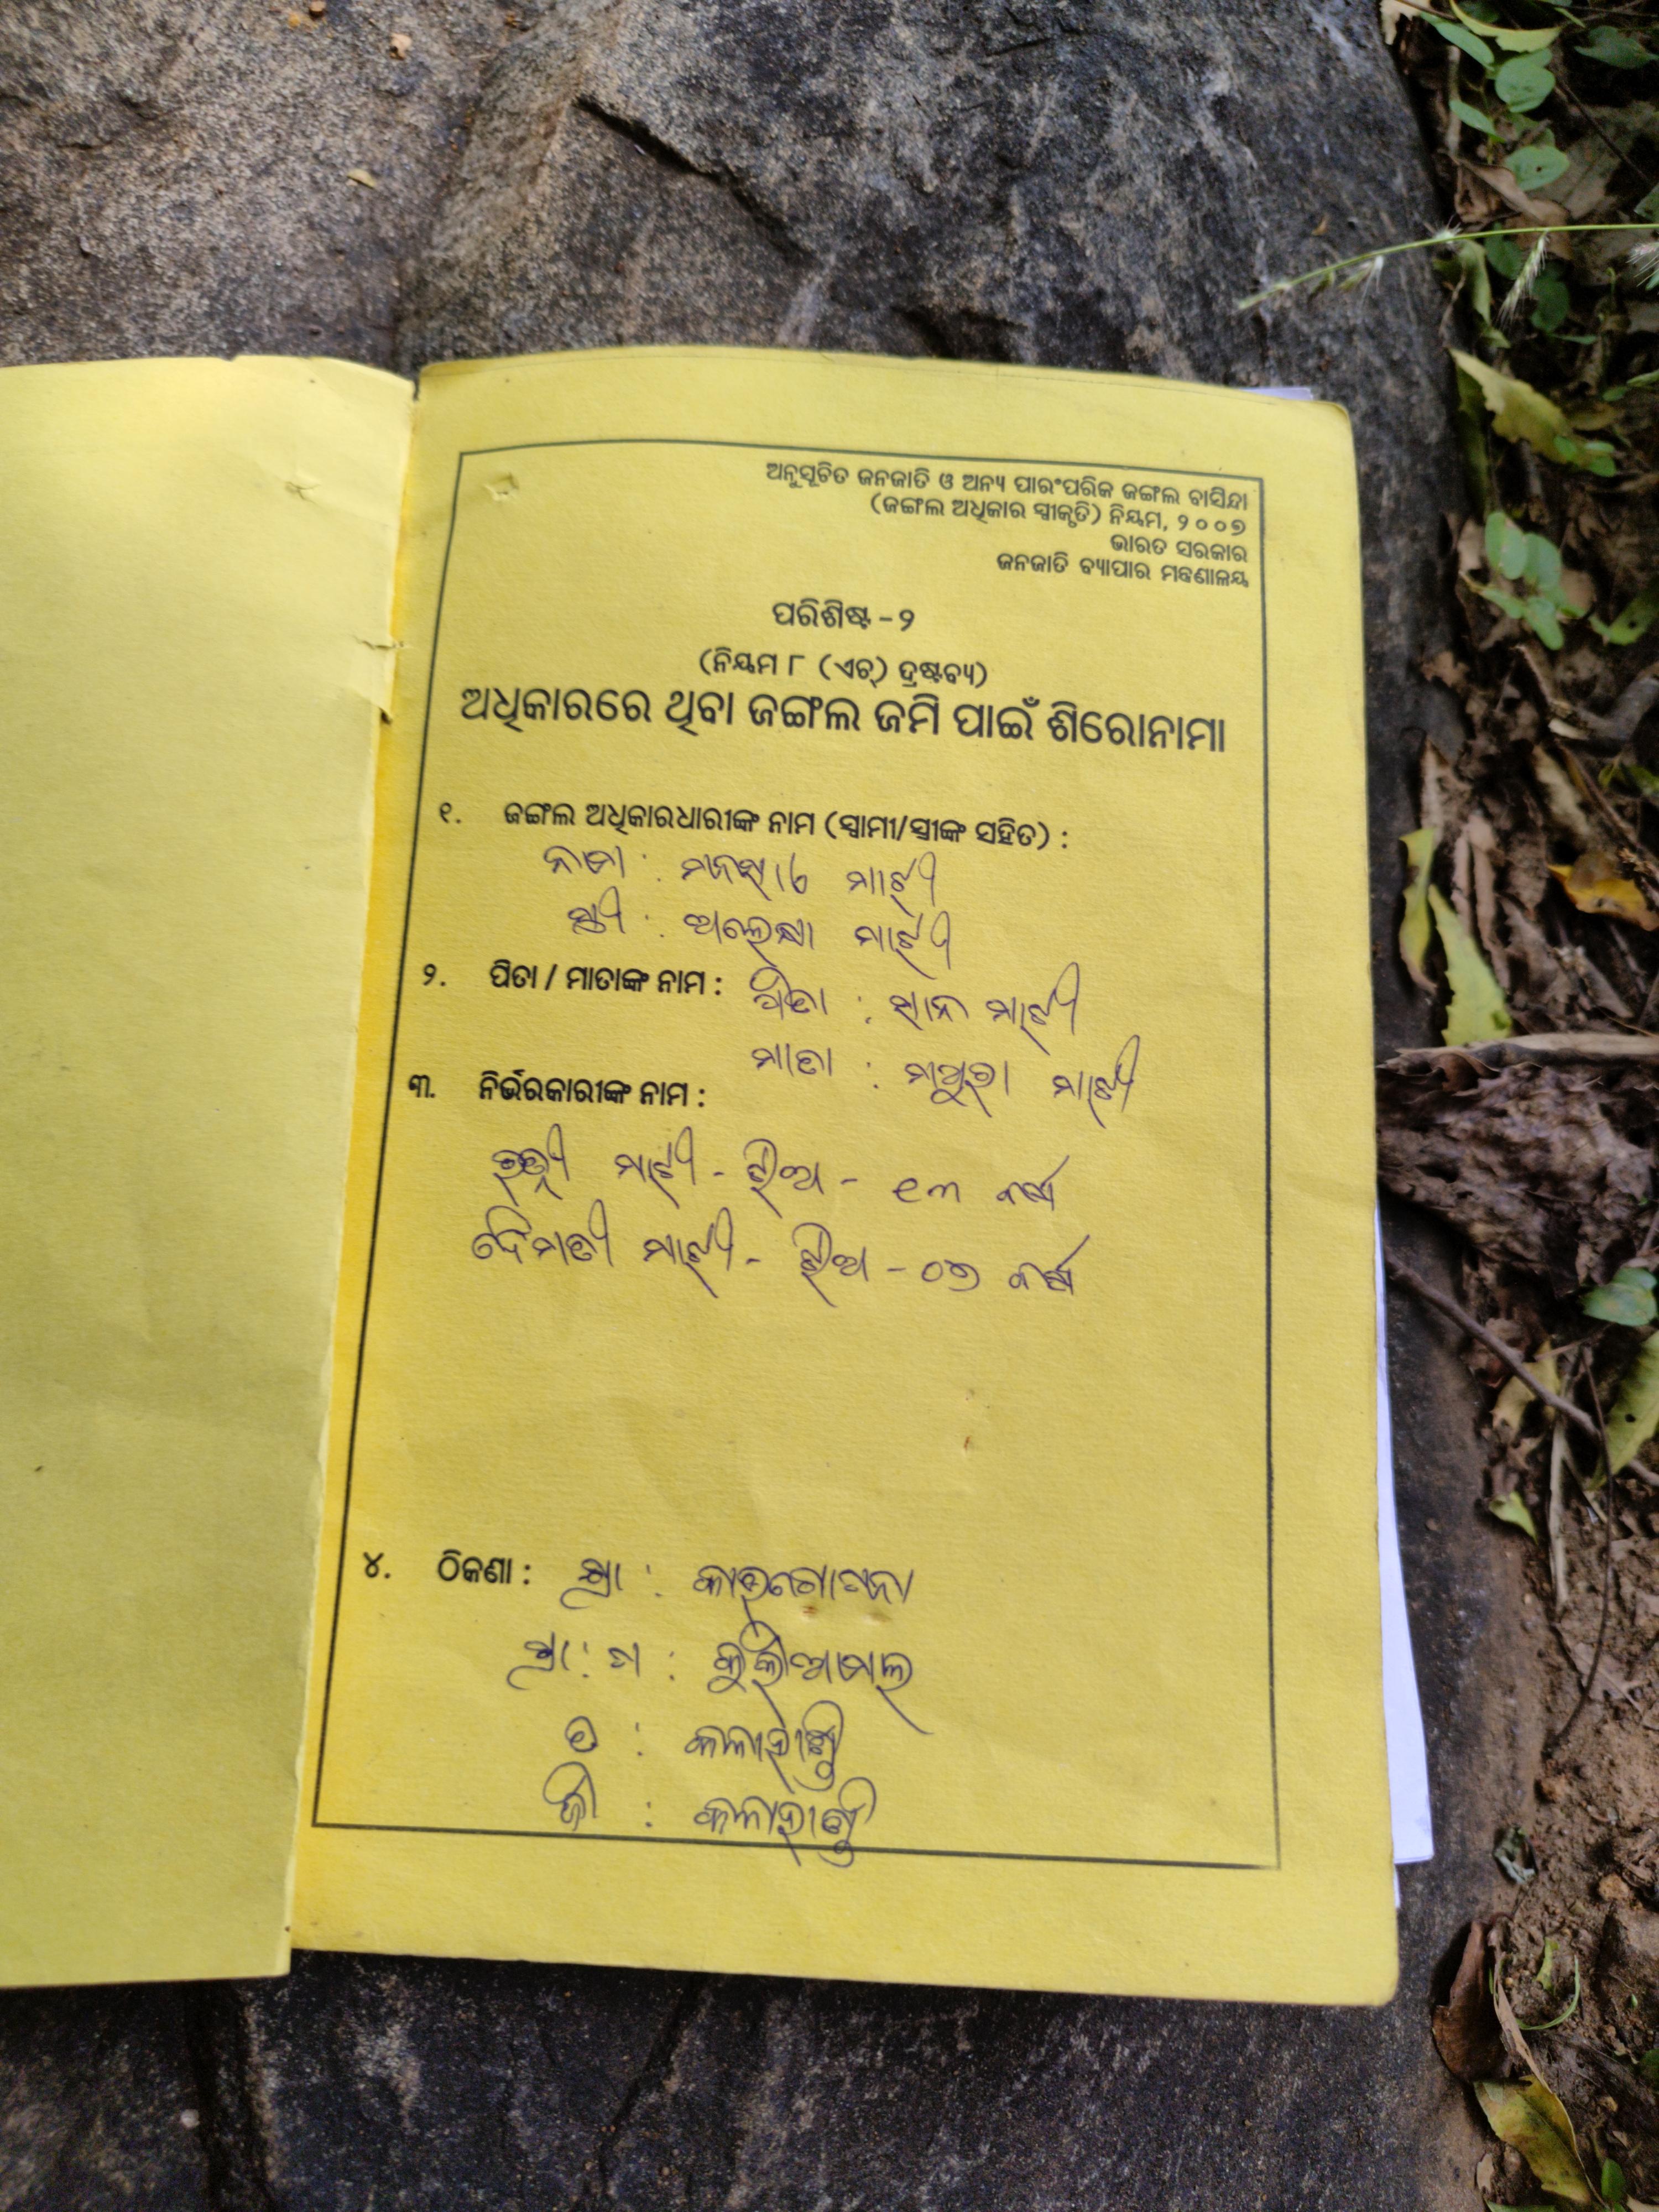 ଅନୁସୂଚିତ ଜନଜାତି ଓ ଅନ୍ୟ ପାରଂପରିକ ଜଙ୍ଗଲ ବାସିନ୍ଦା
(ଜଙ୍ଗଲ ଅଧିକାର ସ୍ୱୀକୃତି) ନିୟମ, ୨୦୦୭
ଭାରତ ସରକାର
ଜନଜାତି ବ୍ୟାପାର ମନ୍ତ୍ରଣାଳୟ
ପରିଶିଷ୍ଟ - ୨
(ନିୟମ ୮ (ଏଚ୍) ଦ୍ରଷ୍ଟବ୍ୟ)
ଅଧିକାରରେ ଥିବା ଜଙ୍ଗଲ ଜମି ପାଇଁ ଶିରୋନାମା
୧. ଜଙ୍ଗଲ ଅଧିକାରଧାରୀଙ୍କ ନାମ (ସ୍ୱାମୀ/ସ୍ତ୍ରୀଙ୍କ ସହିତ) :
ମାଝୀ
ସ୍ତ୍ରୀ : ଅଲେଖା ମାଝୀ
୨. ପିତା / ମାତାଙ୍କ ନାମ : ପିତା : ସାନ ମାଝୀ
ମାତା : ମଥୁରା ମାଝୀ
୩. ନିର୍ଭରକାରୀଙ୍କ ନାମ :
ମାଝୀ - ଝିଅ - ୧୩ ବର୍ଷ
ମାଝୀ - ଝିଅ - ୦୭ ବର୍ଷ
୪. ଠିକଣା : ଗ୍ରା :
ଗ୍ରା : ପ :
ବ : କଳାହାଣ୍ଡି
ଜି : କଳାହାଣ୍ଡି